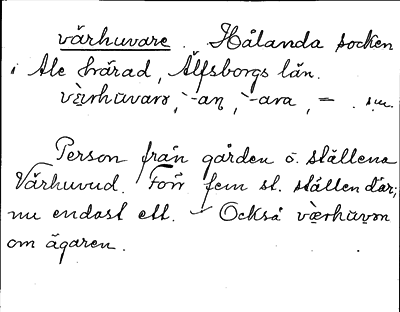 vårhuvare. Hålanda socken
i Ale härad, Älfsborgs län.
væ̀rhuvarə, -aṇ, -ara, = . sm.
Person från gården o. ställena
Vårhuvud. Förr fem st. ställen där;
nu endast ett. – Också væ̀rhuvən
om ägaren.